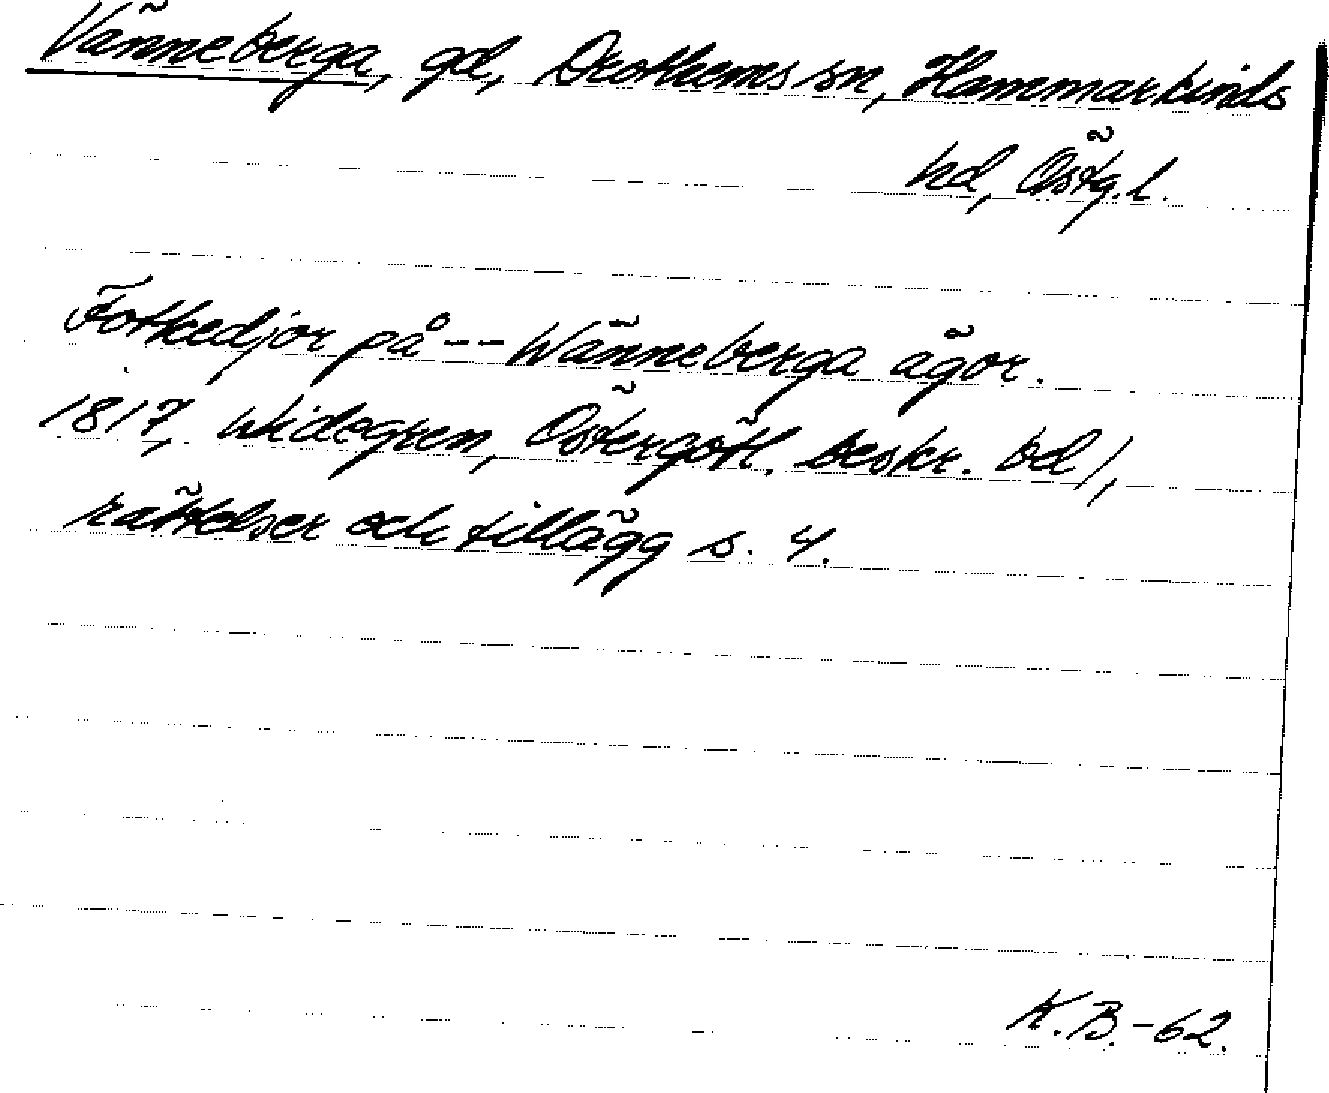 Vänneberga, gd, Drothems sn, Hammarkinds
hd, Östg.l.
Fotkedjor på -- Wänneberga ägor.
1817, Widegren, Östergötl. beskr. bd 1,
rättelser och tillägg s. 4.
K.B.-62.